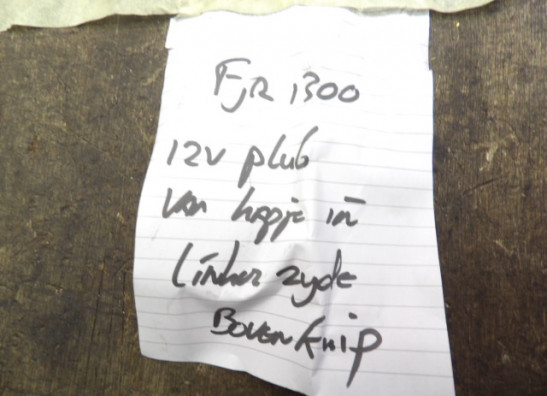 FJR 1300
12V plub
van kapje in
linker zyde
Boven knip